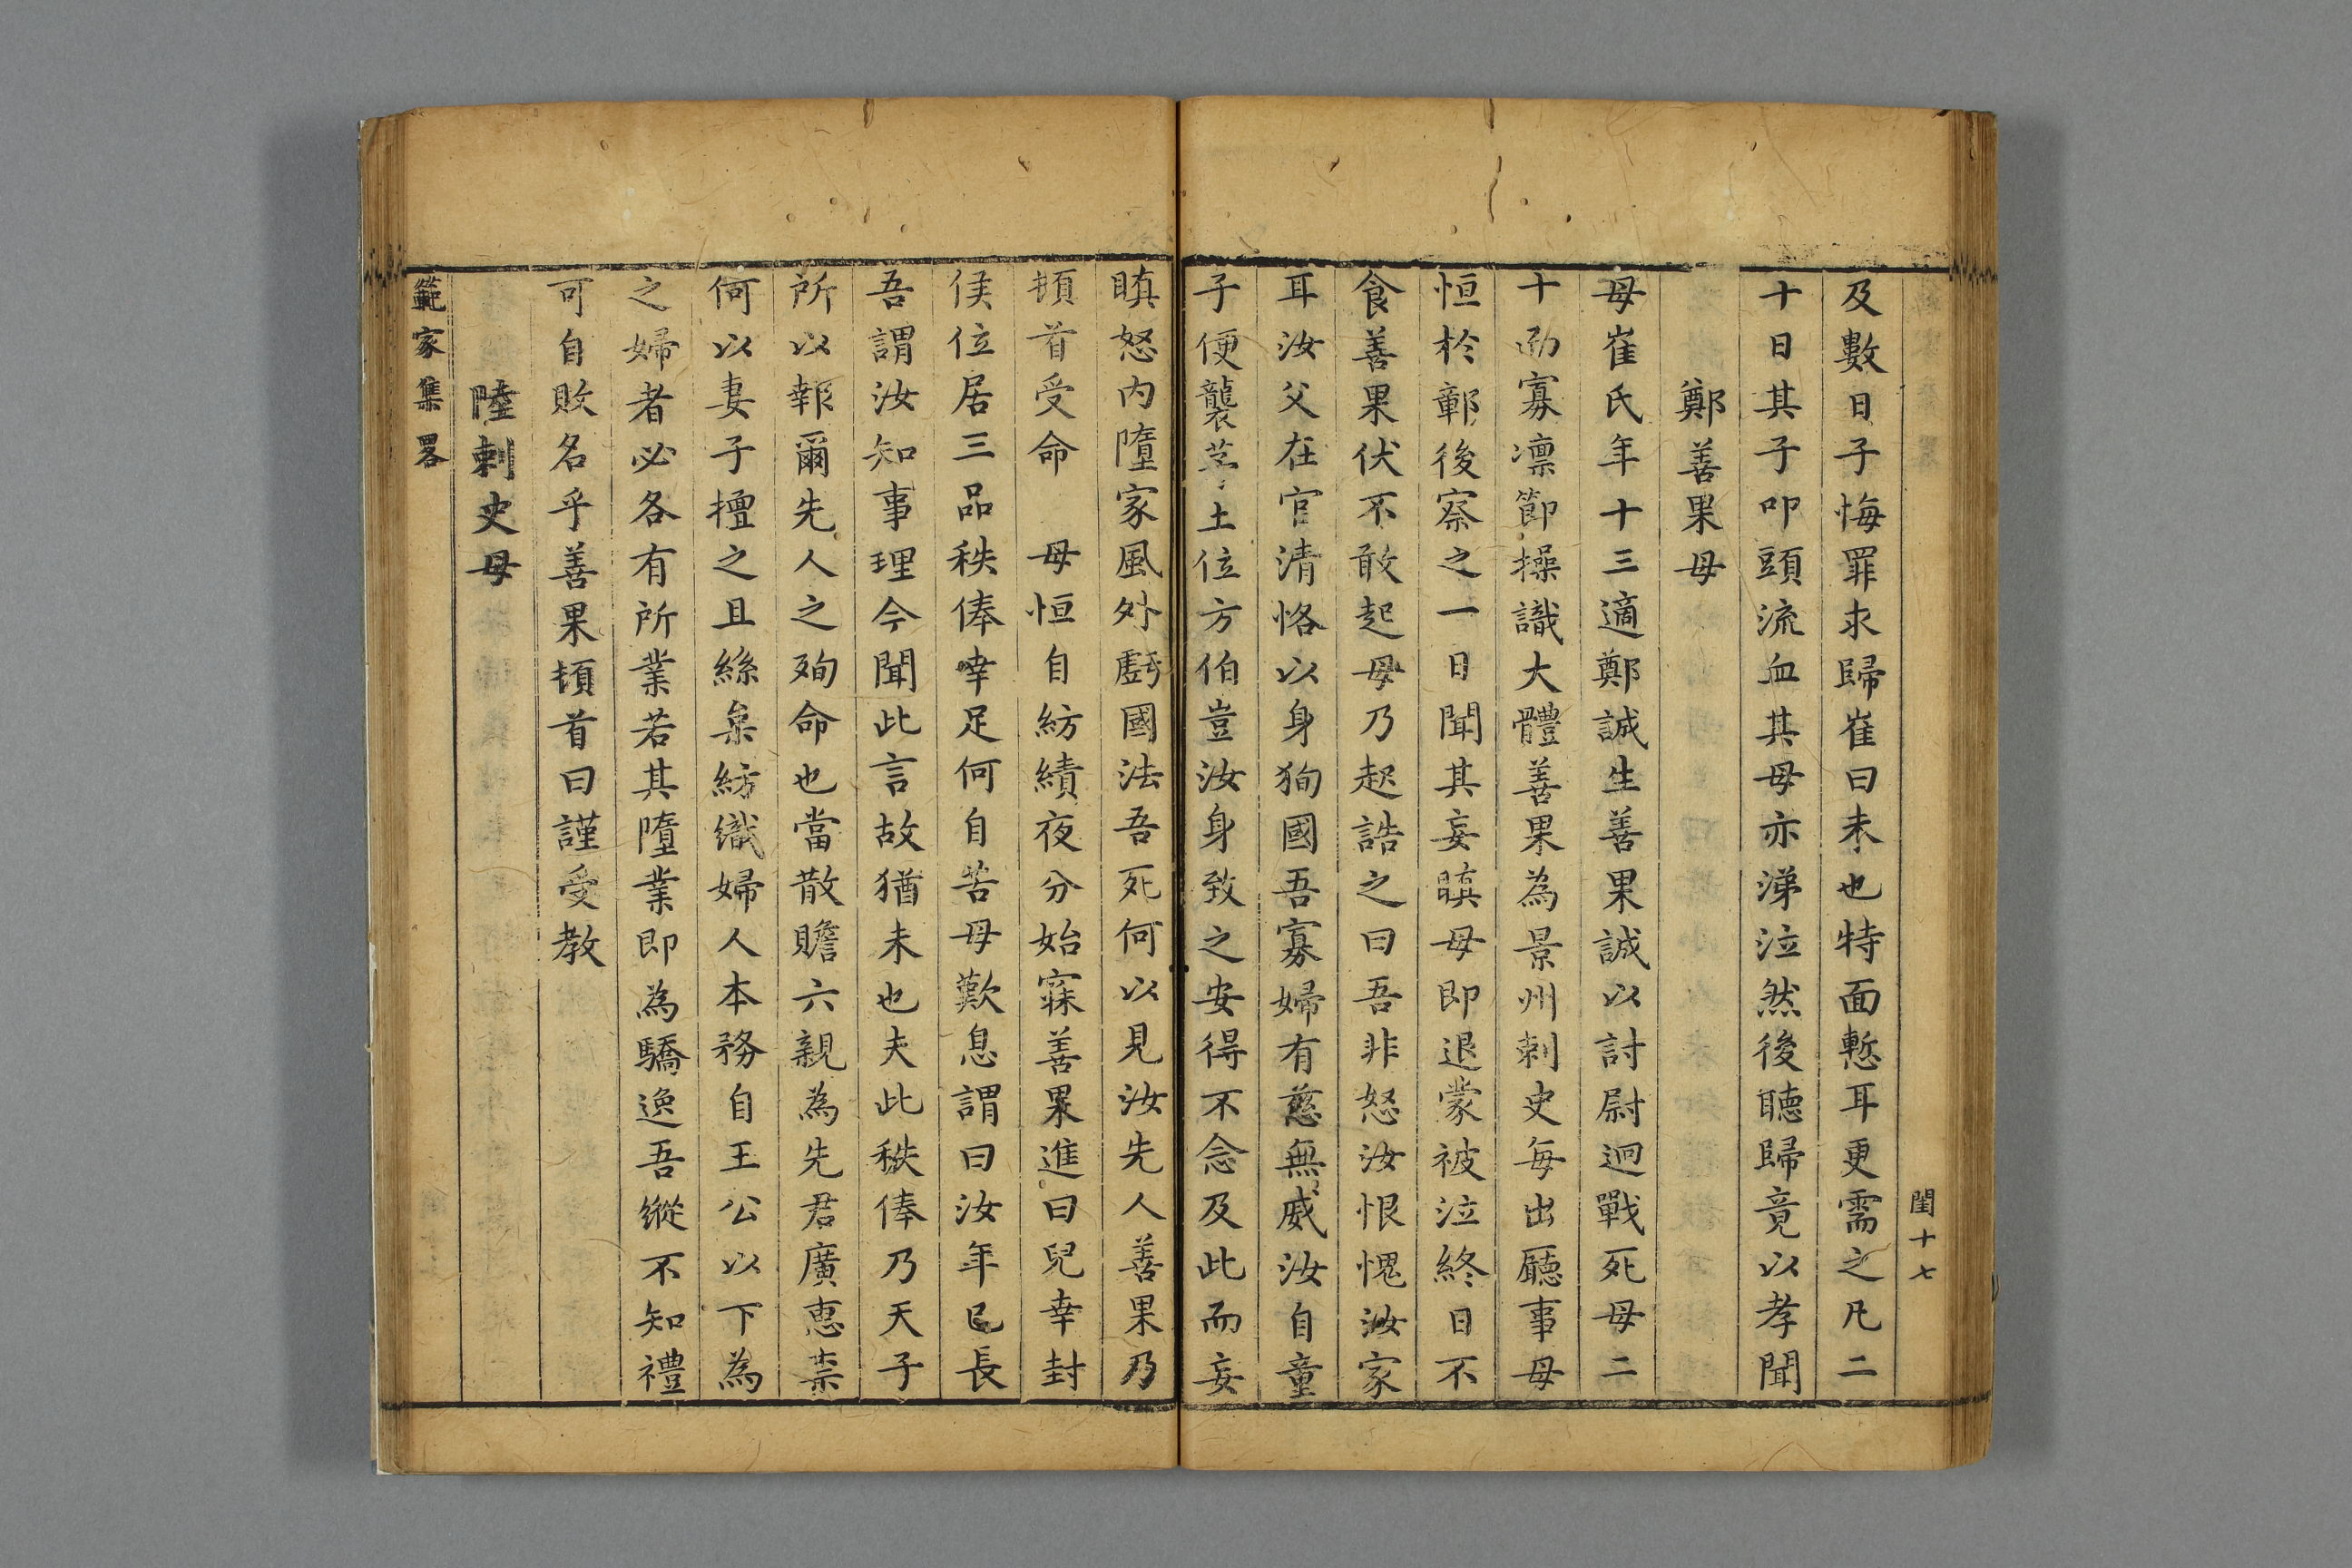 閨十七
及數日子悔罪求歸崔曰未也特面慙耳更需之凡二
十日其子叩頭流血其母亦涕泣然後聽歸竟以孝聞
鄭善果母
母崔氏年十三適鄭誠生善果誠以討尉迥戰死母二
十而寡凛節操識大體善果為景州刺史每出廳事母
恒於鄣後察之一日聞其妄瞋母即退蒙被泣終日不
食善果伏不敢起母乃起誥之曰吾非怒汝恨愧汝家
耳汝父在官清恪以身狥國吾寡婦有慈無威汝自童
子便襲茅土位方伯豈汝身致之安得不念及此而妄
瞋怒内隳家風外虧國法吾死何以見汝先人善果乃
頓首受命　母恒自紡績夜分始寐善果進曰兒幸封
侯位居三品秩俸幸足何自苦母歎息謂曰汝年已長
吾謂汝知事理今聞此言故猶未也夫此秩俸乃天子
所以報爾先人之殉命也當散贍六親為先君廣惠柰
何以妻子擅之且絲枲紡織婦人本務自王公以下為
之婦者必各有所業若其隳業即為驕逸吾縱不知禮
可自敗名乎善果頓首曰謹受教
陸刺史母
範家集畧